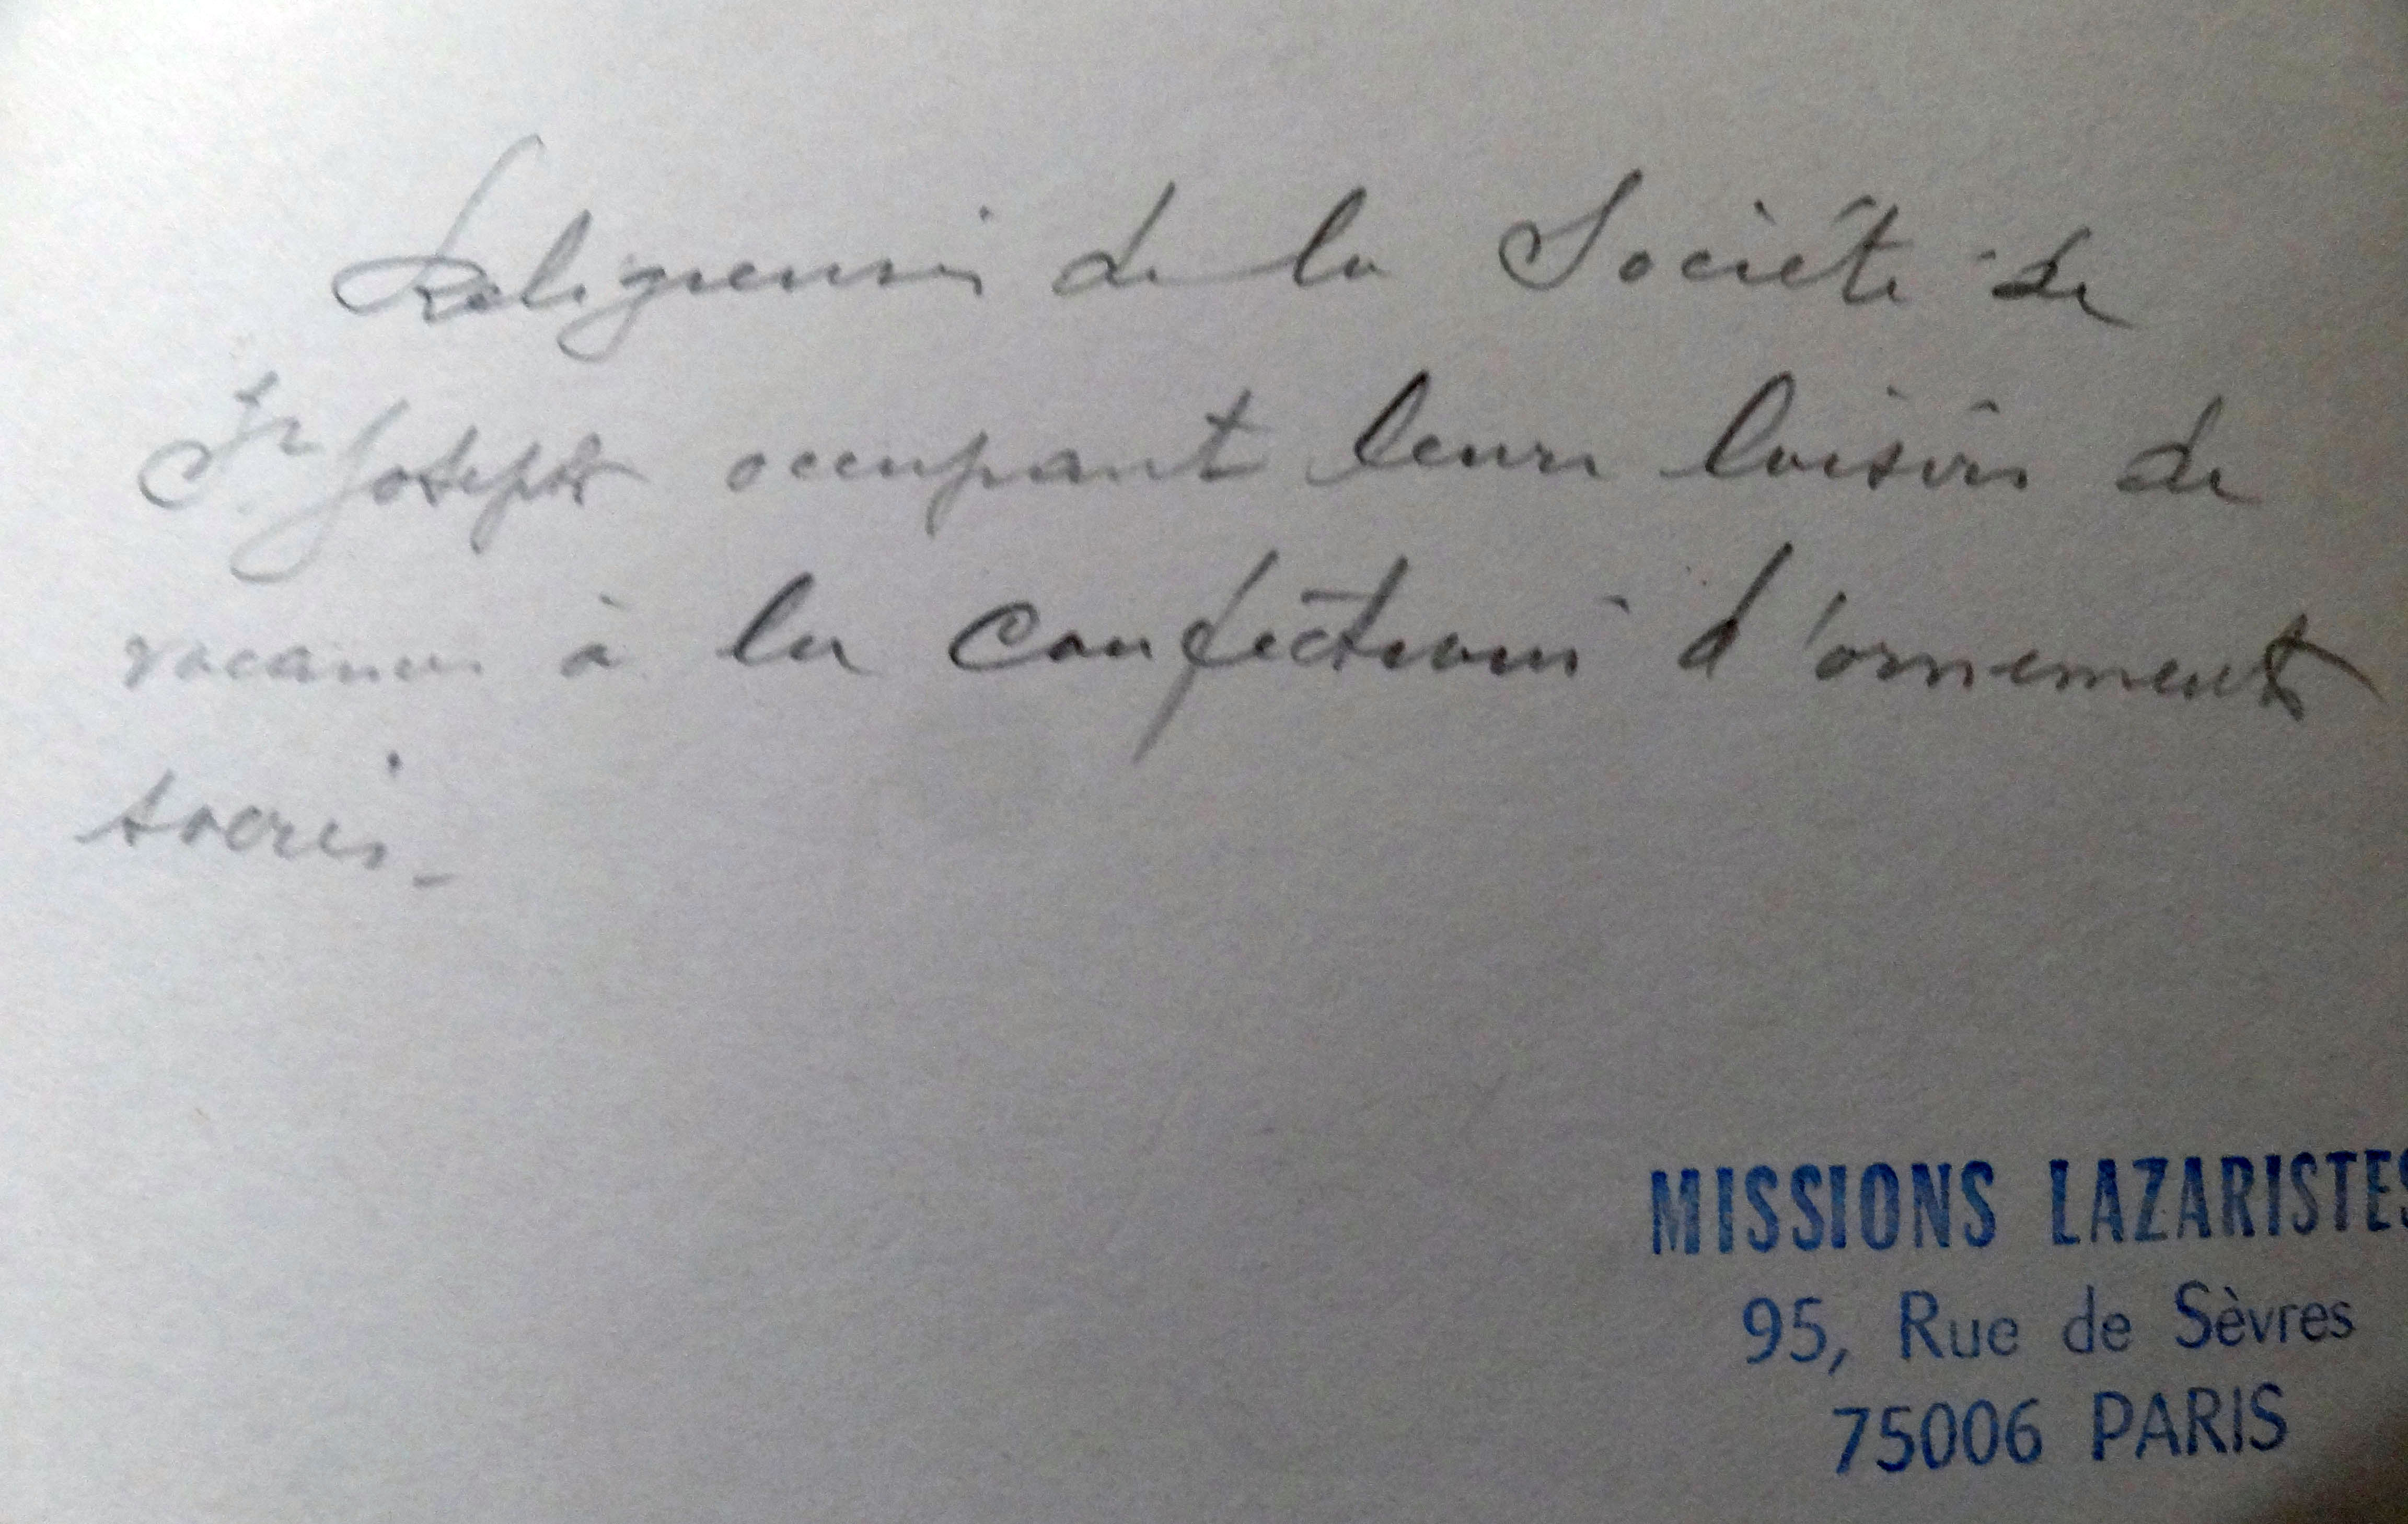 Religieuses de la Société de
St Joseph occupant leurs loisirs de
vacances à la confections d'ornements
sacrés_
MISSIONS LAZARISTES
95, Rue de Sèvres
75006 PARIS